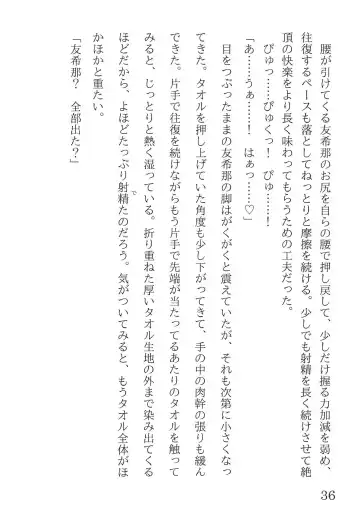 腰が引けてくる友希那のお尻を自らの腰で押し戻して、少しだけ握る力加減を弱め、
往復するペースも落としてねっとりと摩擦を続ける。少しでも射精を長く続けさせて絶
頂の快楽をより長く味わってもらうための工夫だった。
びゅっ……びゅくっ！　びゅ……！
「あ……うぁ……！　はぁっ……♡」
目をつぶったままの友希那の脚はがくがくと震えていたが、それも次第に小さくなっ
てきた。タオルを押し上げていた角度も少し下がってきて、手の中の肉幹の張りも緩ん
できた。片手で往復を続けながらもう片手で先端が当たってるあたりのタオルを触って
みると、じっとりと熱く湿っている。折り重ねた厚いタオル生地の外まで染み出てくる
ほどだから、よほどたっぷり射精たのだろう。気がついてみると、もうタオル全体がほ
かほかと重たい。
「友希那？　全部出た？」
36